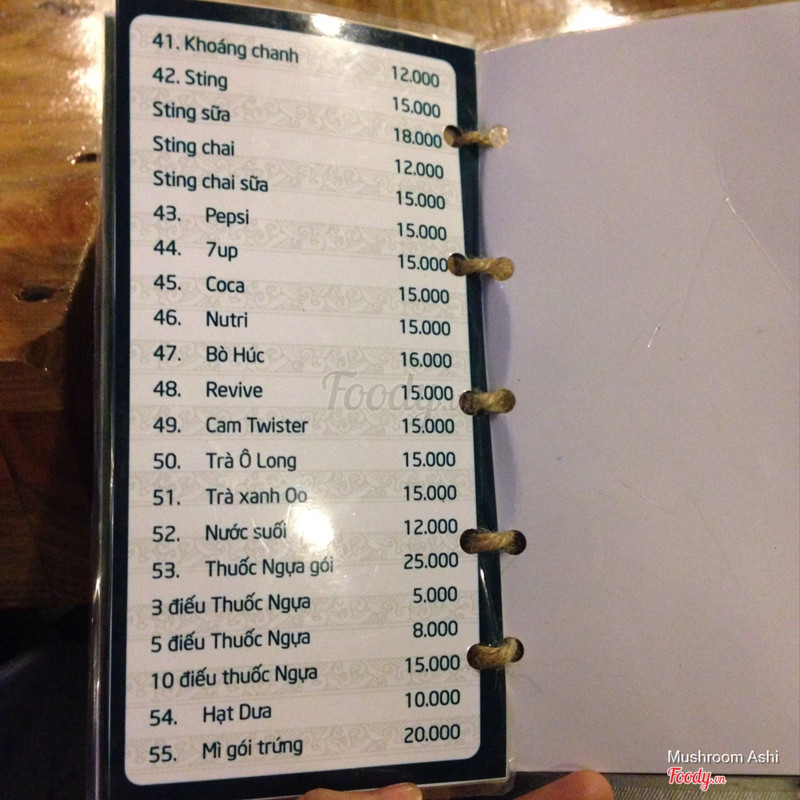 41. Khoáng chanh 12.000
42. Sting 15.000
Sting sữa 18.000
Sting chai 12.000
Sting chai sữa 15.000
43. Pepsi 15.000
44. 7up 15.000
45. Coca 15.000
46. Nutri 15.000
47. Bò Húc 16.000
48. Revive 15.000
49. Cam Twister 15.000
50. Trà Ô Long 15.000
51. Trà xanh Oo 15.000
52. Nước suối 12.000
53. Thuốc Ngựa gói 25.000
3 điếu Thuốc Ngựa 5.000
5 điếu Thuốc Ngựa 8.000
10 điếu thuốc Ngựa 15.000
54. Hạt Dưa 10.000
55. Mì gói trứng 20.000
Foody.vn
Mushroom Ashi
Foody.vn